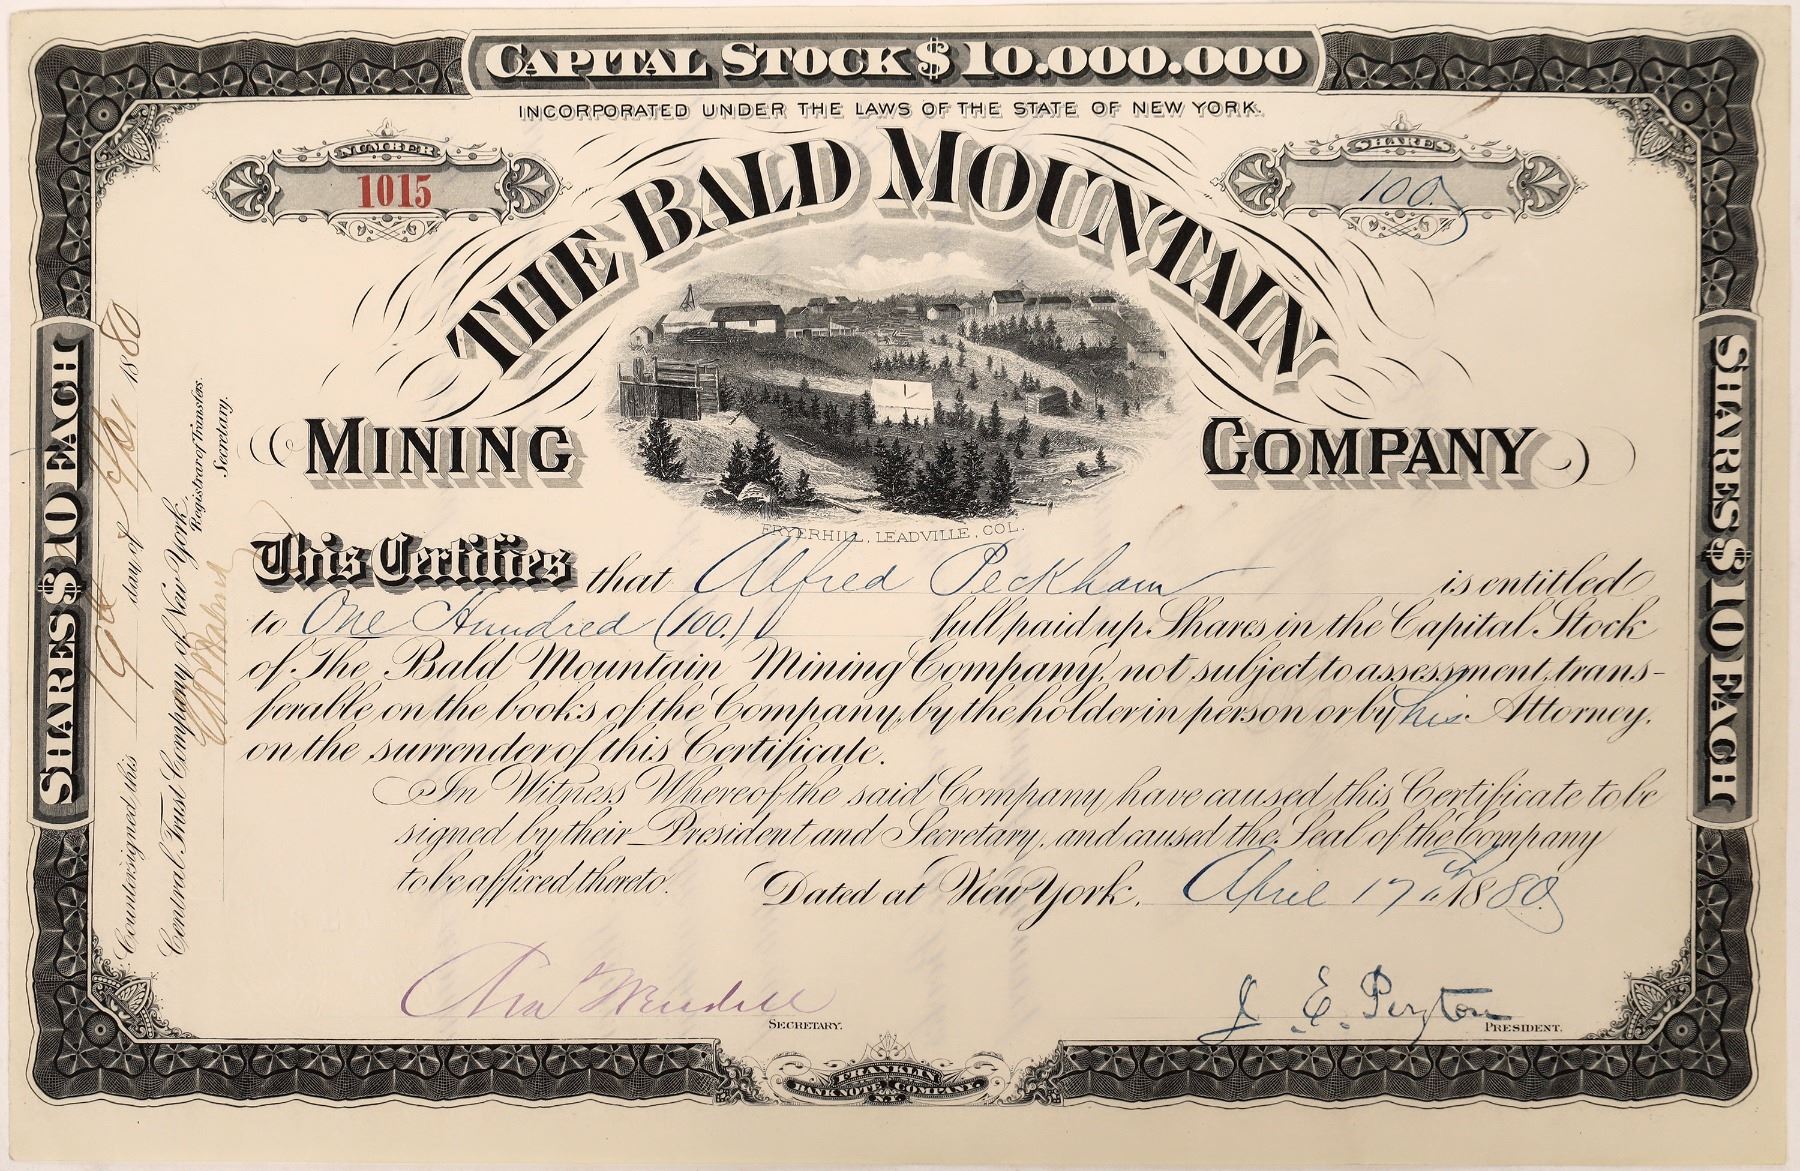 CAPITAL STOCK $10.000.000
INCORPORATED UNDER THE LAWS OF THE STATE OF NEW YORK.
NUMBER
1015
SHARES
100.
THE BALD MOUNTAIN
MINING COMPANY
FRYERHILL, LEADVILLE, COL.
This Certifies that Alfred Peckham is entitled
to One Hundred (100.) full paid up Shares in the Capital Stock
of The Bald Mountain Mining Company, not subject to assessment, trans-
ferable on the books of the Company, by the holder in person or by his Attorney,
on the surrender of this Certificate.
In Witness Whereof the said Company, have caused this Certificate to be
signed by their President and Secretary, and caused the Seal of the Company
to be affixed thereto.
Dated at New York, April 17th 1880.
SECRETARY.
J. E. Peyton
PRESIDENT.
FRANKLIN
BANK NOTE COMPANY.
N.Y.
SHARES $10 EACH
SHARES $10 EACH
Countersigned this 19th day of 1880
Central Trust Company of New York,
Registrar of Transfers.
Secretary.